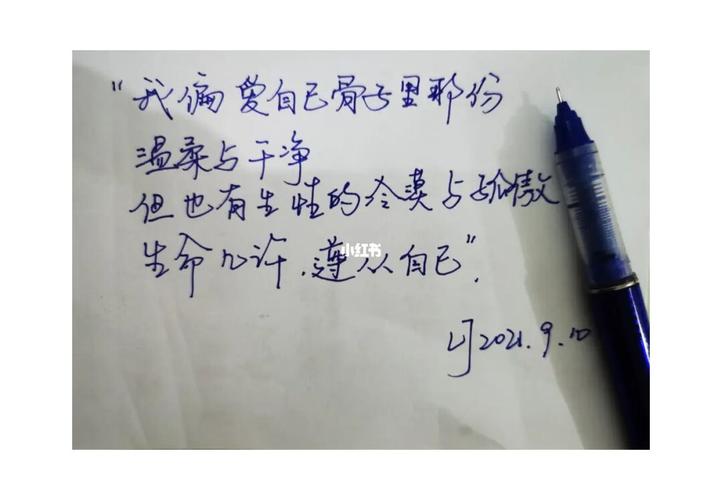 “我偏爱自己骨子里那份
温柔与干净
但也有生性的冷漠与骄傲
小红书
生命几许.遵从自己”.
2021.9.10